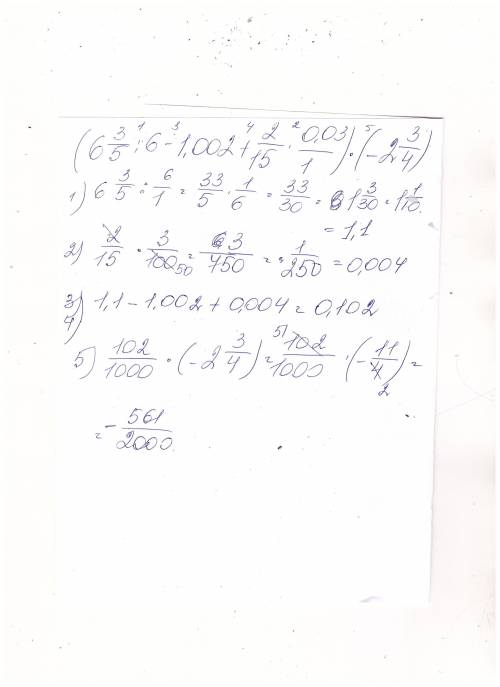 (6 3/5 : 6 - 1,002 + 2/15 · 0,03/1) · (-2 3/4)
1) 6 3/5 : 6/1 = 33/5 · 1/6 = 33/30 = 1 3/30 = 1 1/10
= 1,1
2) 2/15 · 3/100 50 = 3/750 = 1/250 = 0,004
3) 4) 1,1 - 1,002 + 0,004 = 0,102
5) 102/1000 · (-2 3/4) = 51 102/1000 · (-11/4 2) =
= - 561/2000